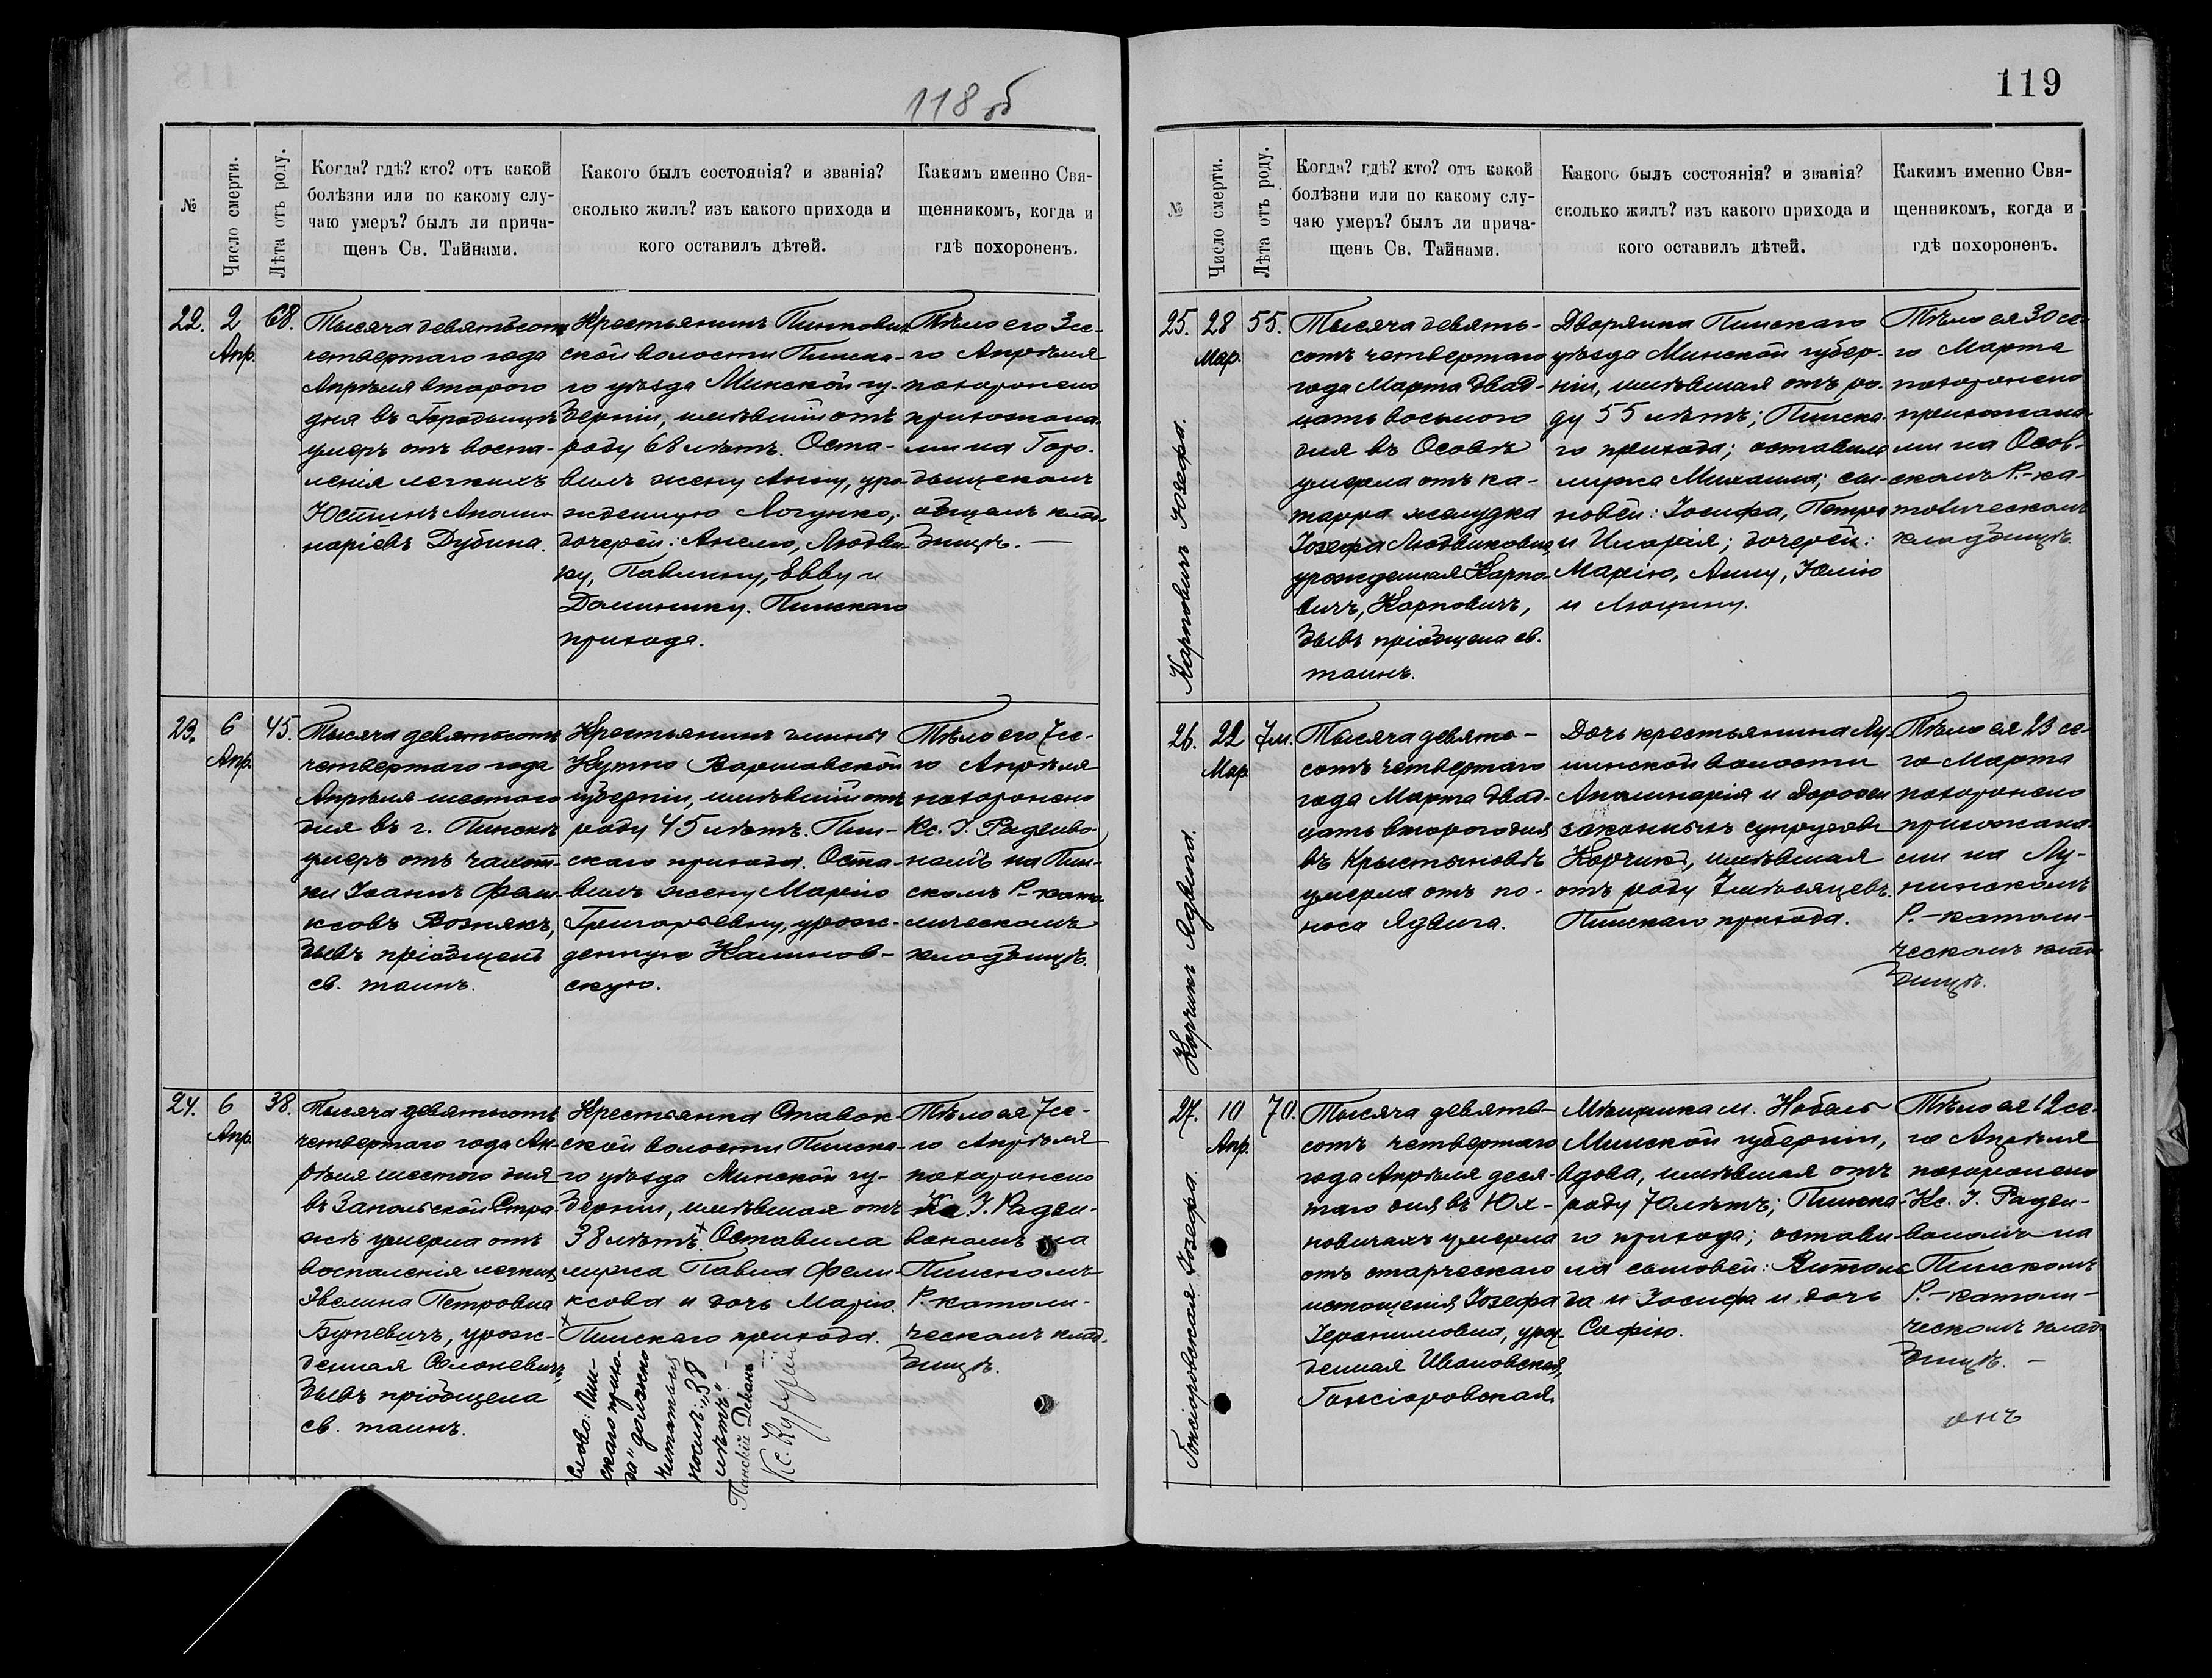 118 об
№
Число смерти.
Лѣта отъ роду.
Когда? гдѣ? кто? отъ какой
болѣзни или по какому слу-
чаю умеръ? былъ ли прича-
щенъ Св. Тайнами.
Какого былъ состоянія? и званія?
сколько жилъ? изъ какого прихода и
кого оставилъ дѣтей.
Какимъ именно Свя-
щенникомъ, когда и
гдѣ похороненъ.
22.
2
Апр.
68.
Тысяча девятьсотъ
четвертаго года
Апрѣля второго
дня въ Городищѣ
умеръ отъ воспа-
ленія легкихъ
Юстинъ Аполи-
наріевъ Дубина.
Крестьянинъ Пинкович
ской волости Пинска-
го уѣзда Минской гу-
берніи, имѣвшій отъ
роду 68 лѣтъ. Оста-
вилъ жену Анну, уро-
жденную Логунко,
дочерей: Анелю, Людви-
ку, Павлину, Евву и
Доминику. Пинскаго
прихода.
Тѣло его 3 се-
го Апрѣля
похоронено
прихожана-
ми на Горо-
дищскомъ
общемъ клад-
бищѣ. —
23.
6
Апр.
45.
Тысяча девятьсотъ
четвертаго года
Апрѣля шестого
дня въ г. Пинскѣ
умеръ отъ чахот-
ки Іоаннъ Фели-
ксовъ Вознякъ,
бывъ пріобщенъ
св. таинъ.
Крестьянинъ гмины
Кутно Варшавской
губерніи, имѣвшій отъ
роду 45 лѣтъ. Пин-
скаго прихода. Оста-
вилъ жену Марію
Григорьевну, урож-
денную Калинов-
скую.
Тѣло его 7 се-
го Апрѣля
похоронено
Кс. І. Радзиво-
номъ на Пин-
скомъ Р.-като-
лическомъ
кладбищѣ.
24.
6
Апр.
38.
Тысяча девятьсотъ
четвертаго года Ап-
рѣля шестого дня
въ Запольской Стра-
жѣ умерла отъ
воспаленія легкихъ
Эвелина Петровна
Буткевичъ, урож-
денная Селюкевичъ,
бывъ пріобщена
св. таинъ.
Крестьянка Ставок-
ской волости Пинска-
го уѣзда Минской гу-
берніи, имѣвшая отъ
38 лѣтъ.× Оставила
мужа Павла Фели-
ксова и дочь Марію.
× Пинскаго прихода.
Слово: Пин-
скаго прихо-
да" должно
читаться
послѣ: "38
лѣтъ" —
Пинскій Деканъ
Тѣло ея 7 се-
го Апрѣля
похоронено
Кс. І. Радзи-
вономъ на
Пинскомъ
Р.-католи-
ческомъ клад-
бищѣ.
119
№
Число смерти.
Лѣта отъ роду.
Когда? гдѣ? кто? отъ какой
болѣзни или по какому слу-
чаю умеръ? былъ ли прича-
щенъ Св. Тайнами.
Какого былъ состоянія? и званія?
сколько жилъ? изъ какого прихода и
кого оставилъ дѣтей.
Какимъ именно Свя-
щенникомъ, когда и
гдѣ похороненъ.
25.
28
Мар.
55.
Карповичъ Юзефа.
Тысяча девять-
сотъ четвертаго
года Марта двад-
цать восьмого
дня въ Осовѣ
умерла отъ ка-
тарра желудка
Іозефа Людвиковна
урожденная Карпо-
вичъ, Карповичъ,
бывъ пріобщена св.
таинъ.
Дворянка Пинскаго
уѣзда Минской губер-
ніи, имѣвшая отъ ро-
ду 55 лѣтъ; Пинска-
го прихода; оставила
мужа Михаила; сы-
новей: Іосифа, Петра
и Иларія; дочерей:
Марію, Анну, Юлію
и Люцину.
Тѣло ея 30 се-
го Марта
похоронено
прихожана-
ми на Осов-
скомъ Р.-ка-
толическомъ
кладбищѣ.
26.
22
Мар.
7 м.
Корчикъ Ядвига.
Тысяча девять-
сотъ четвертаго
года Марта двад-
цать второго дня
въ Крыстыновѣ
умерла отъ по-
носа Ядвига.
Дочь крестьянина Лу-
нинской волости
Аполинарія и Дороѳеи
законныхъ супруговъ
Корчикъ, имѣвшая
отъ роду 7 мѣсяцевъ.
Пинскаго прихода.
Тѣло ея 23 се-
го Марта
похоронено
прихожана-
ми на Лу-
нинскомъ
Р.-католи-
ческомъ клад-
бищѣ.
27.
10
Апр.
70.
Гонсіоровская Іозефа.
Тысяча девять-
сотъ четвертаго
года Апрѣля деся-
таго дня въ Юх-
новичахъ умерла
отъ старческаго
истощенія Іозефа
Іеронимовна, урож-
денная Ивановская,
Гонсіоровская.
Мѣщанка м. Нобель
Минской губерніи,
вдова, имѣвшая отъ
роду 70 лѣтъ; Пинска-
го прихода; остави-
ла сыновей: Витоль-
да и Іосифа и дочь
Софію.
Тѣло ея 12 се-
го Апрѣля
похоронено
Кс. І. Радзи-
вономъ на
Пинскомъ
Р.-католи-
ческомъ клад-
бищѣ. —
онъ